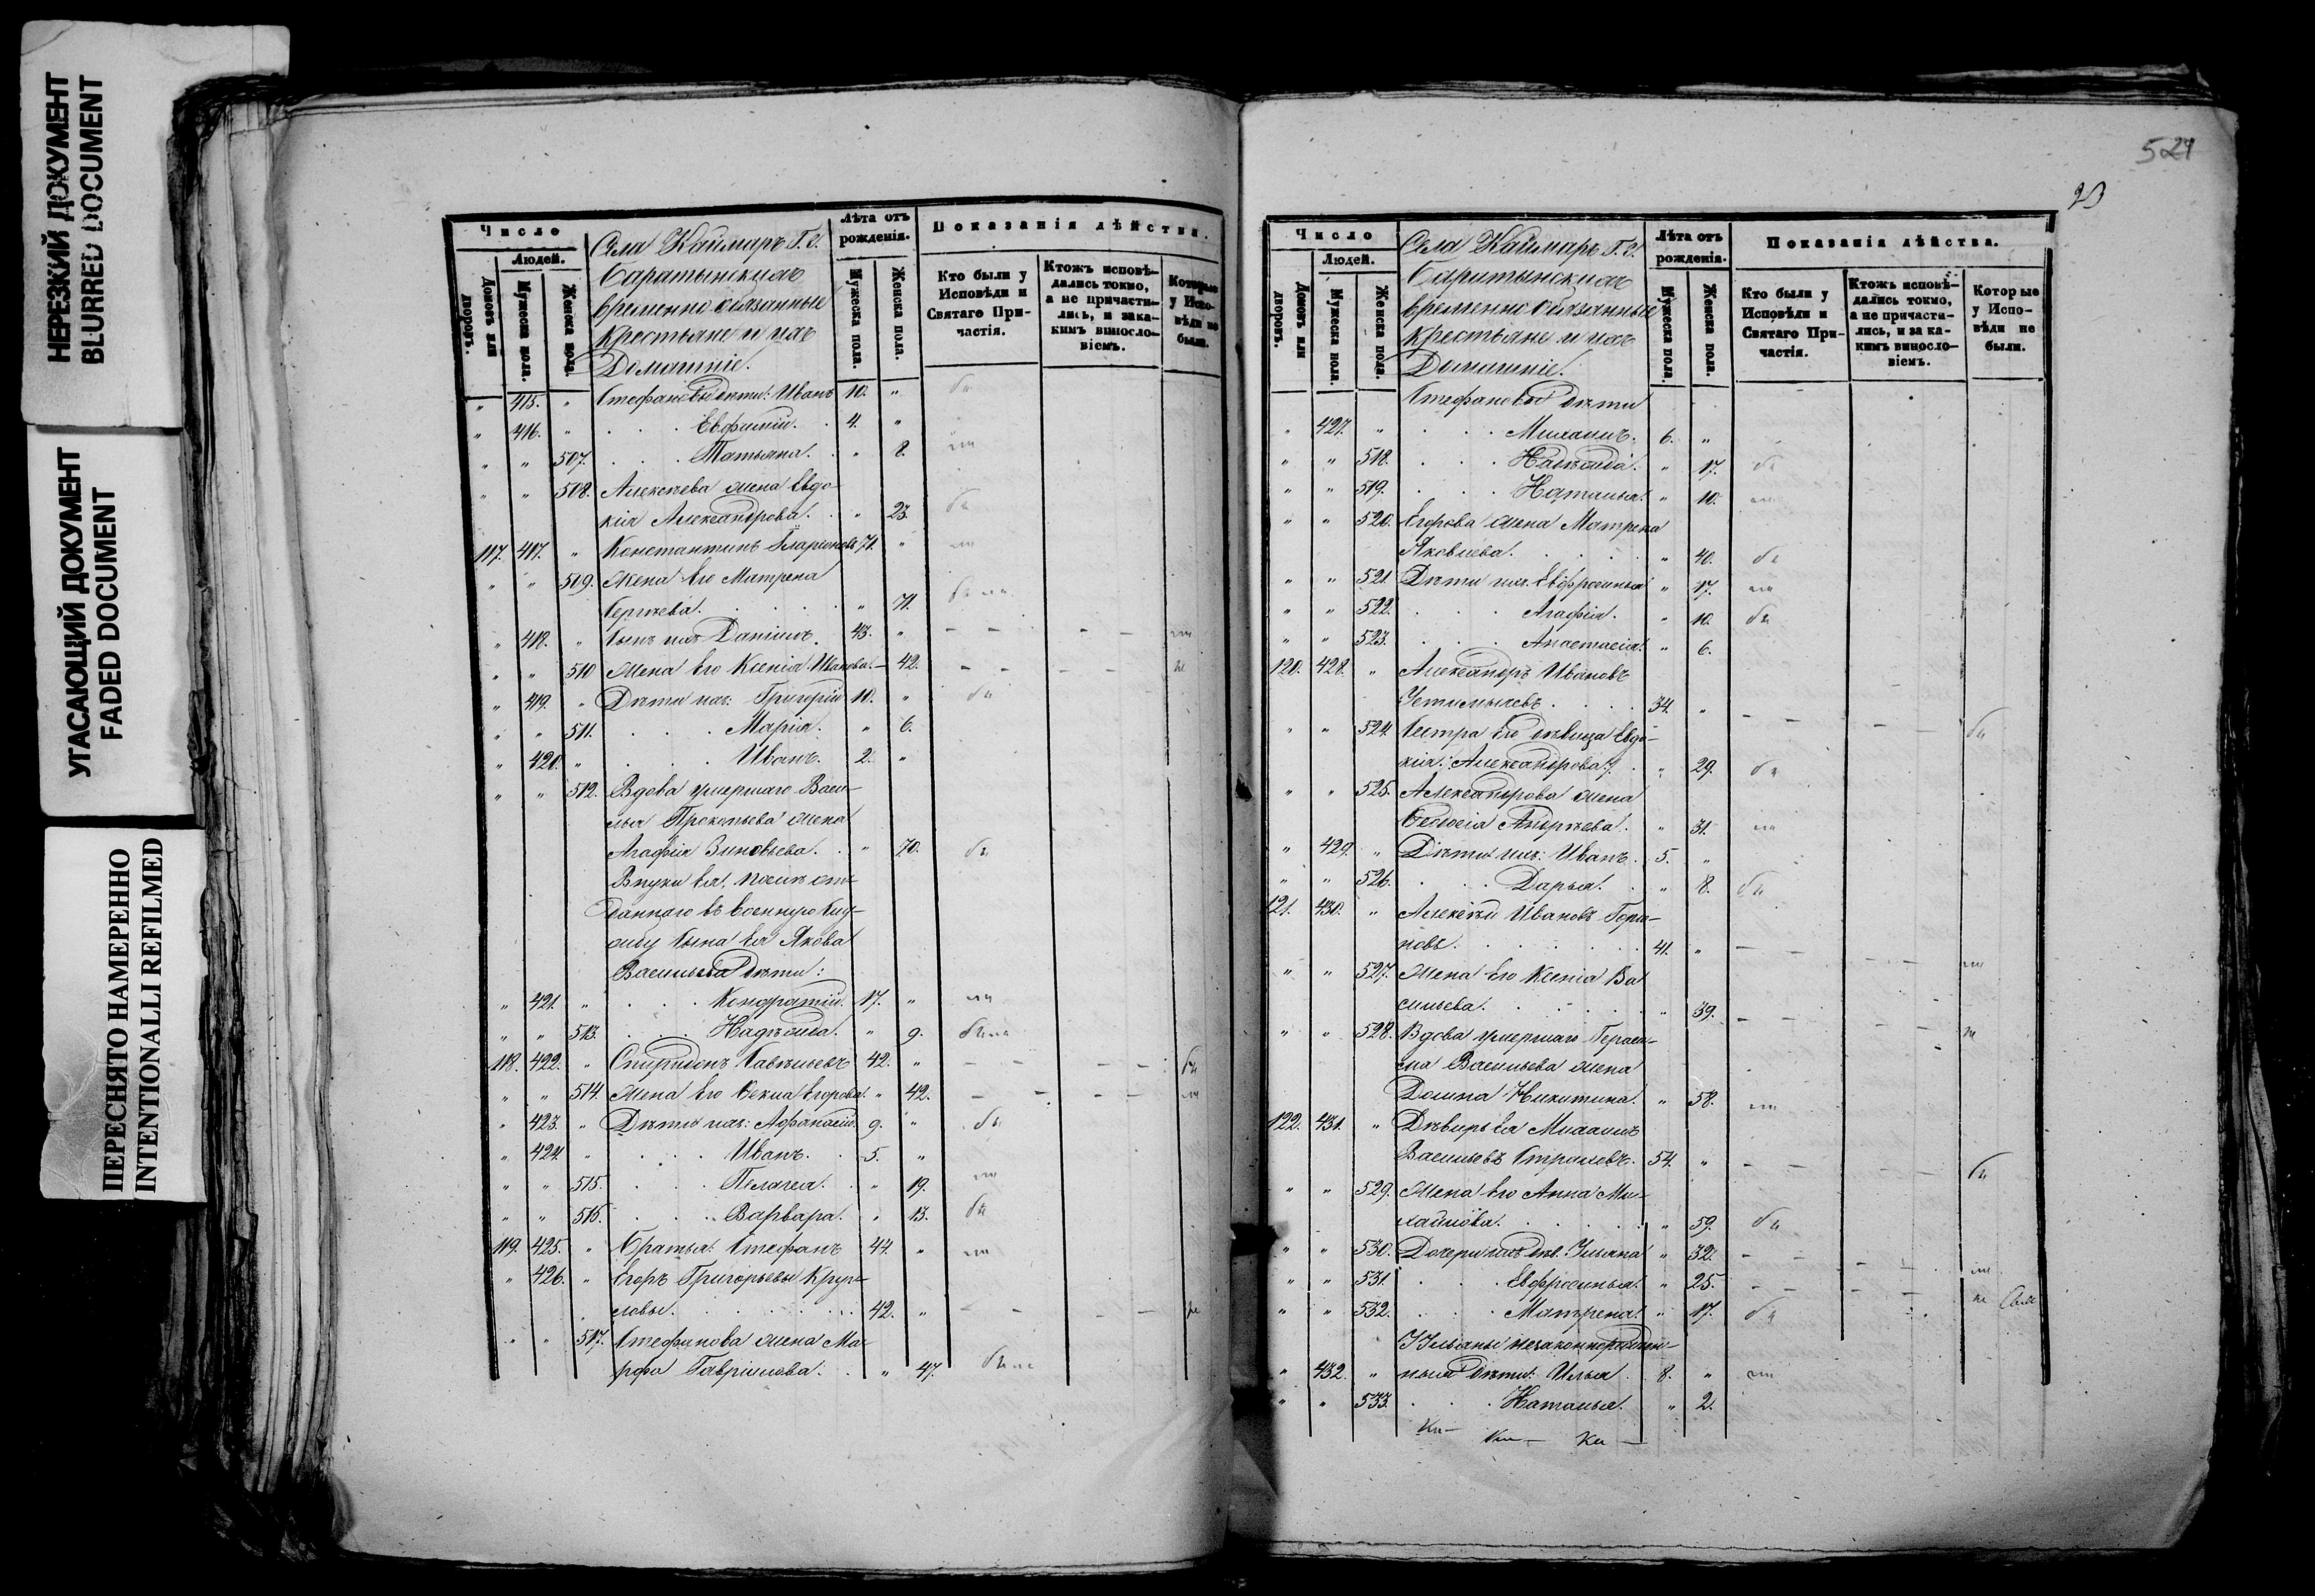 НЕРЕЗКИЙ ДОКУМЕНТ
BLURRED DOCUMENT
УГАСАЮЩИЙ ДОКУМЕНТ
FADED DOCUMENT
ПЕРЕСНЯТО НАМЕРЕННО
INTENTIONALLI REFILMED
Число
Людей.
Домовъ или дворовъ.
Мужеска пола.
Женска пола.
Села Каймаръ Г. г.
Баратынскихъ
временно обязанные
Крестьяне и ихъ
Домашніе.
Лѣта отъ рожденія.
Мужеска пола.
Женска пола.
Показанія дѣйства.
Кто были у Исповѣди и Святаго Причастія.
Ктожъ исповѣдались токмо, а не причастились, и закакимъ винословіемъ.
Которые у Исповѣди не были.
" 415. " Стефановы дѣти: Иванъ 10. "
" 416. " Евфимій. 4. "
" " 507. Татьяна. " 8.
" " 508. Алексѣева жена Евдо-
кія Александрова. " 23.
117. 417. " Константинъ Иларіоновъ 71. "
" " 509. Жена его Матрена
Сергѣева. " 71.
" 418. " Сынъ ихъ Даніилъ. 43. "
" " 510 Жена его Ксенія Иванова. 42.
" 419. " Дѣти ихъ: Григорій 10. "
" " 511. Марія. " 6.
" 420. " Иванъ. 2. "
" " 512. Вдова умершаго Васи-
лья Прокопьева жена
Агафія Зиновьева. " 70.
Внуки ея, послѣ от-
даннаго въ военную служ-
жбу сына ея Якова
Васильева дѣти:
" 421. " Кондратій. 17. "
" " 513. Надежда. " 9.
118. 422. " Спиридонъ Савельевъ 42. "
" " 514. Жена его Ѳекла Егорова. " 42.
" 423. " Дѣти ихъ: Афанасій. 9. "
" 424. " Иванъ. 5. "
" " 515. Пелагея. " 19.
" " 516. Варвара. " 13.
119. 425. " Братья: Стефанъ 44. "
" 426. " Егоръ Григорьевы Круг-
ловы. 42. "
" " 517. Стефанова жена Ма-
рфа Гавріилова. " 47.
524
Число
Людей.
Домовъ или дворовъ.
Мужеска пола.
Женска пола.
Села Каймаръ Г. г.
Баратынскихъ
временно обязанные
Крестьяне и ихъ
Домашніе.
Лѣта отъ рожденія.
Мужеска пола.
Женска пола.
Показанія дѣйства.
Кто были у Исповѣди и Святаго Причастія.
Ктожъ исповѣдались токмо, а не причастились, и за какимъ винословіемъ.
Которые у Исповѣди не были.
Стефановы дѣти
" 427. " Михаилъ. 6. "
" " 518. Надежда. " 17.
" " 519. Наталья. " 10.
" " 520. Егорова жена Матрена
Яковлева. " 40.
" " 521. Дѣти ихъ: Евфросинья " 17.
" " 522. Агафія. " 10.
" " 523. Анастасія. " 6.
120. 428. " Александръ Ивановъ
34. "
" " 524. Сестра его дѣвица Евдо-
кія Александрова. " 29.
" " 525. Александрова жена
Ѳеодосія Андреева. " 31.
" 429. " Дѣти ихъ: Иванъ. 5. "
" " 526. Дарья. " 8.
121. 430. " Алексѣй Ивановъ
41. "
" " 527. Жена его Ксенія Ва
сильева. " 39.
" " 528. Вдова умершаго Гераси-
ма Васильева жена
Домна Никитина. " 58.
122. 431. " Деверь ея Михаилъ
Васильевъ Страховъ. 54. "
" " 529. Жена его Анна Ми-
хайлова. " 59.
" " 530. Дочери ихъ дѣв. Ульяна " 32.
" " 531. Евфросинья. " 25.
" " 532. Матрена. " 17.
У Ульяны незаконнорожден-
" 432. " ныя дѣти: Илья. 8. "
" " 533. Наталья. " 2.